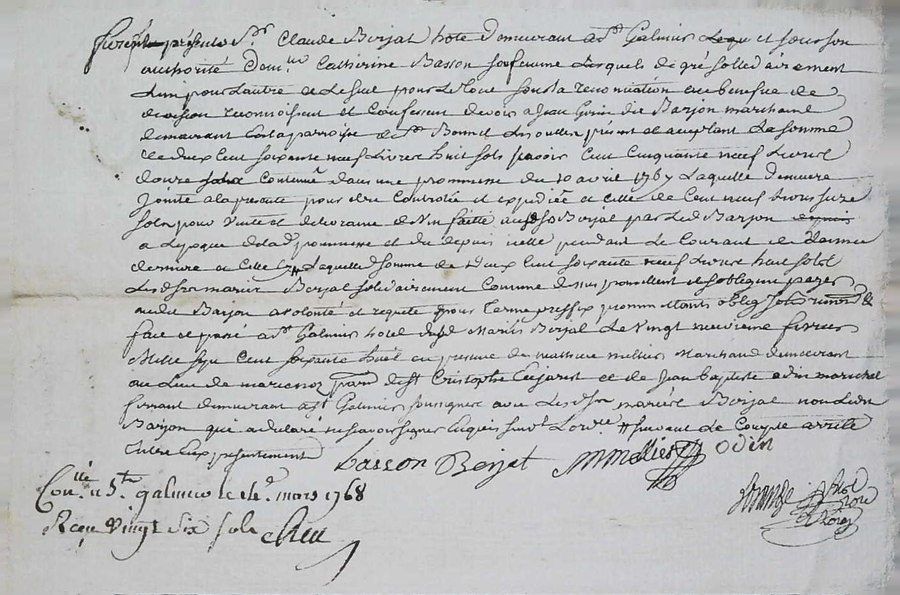 furent présents Sr. Claude Berjat hote demeurant a St Galmier et sous son
authorité demlle Catherine Basson sa femme lesquels de gré solidairement
l'un pour l'autre et le seul pour le tout sous la renonciation au benefice de
division reconnoissent et confessent devoir a Jean Barjon marchand
demeurant en la paroisse de St Bonnet les oulles present et acceptant la somme
de deux cent soixante neuf livres huit sols scavoir cent cinquante neuf livres
douze sols contenus dans une promesse du 10 avril 1767 laquelle demeure
jointe a la presente pour etre controlée et expediée et celle de cent neuf livres seize
sols pour vente et delivrance de vin faitte auxds Berjat par led Barjon
a l'epoque de lad promesse et du depuis icelle pendant le courant de l'année
derniere laquelle ditte somme de deux cent soixante neuf livres huit sols
lesd mariés Berjat solidairement comme dessus promettent et s'obligent payer
aud Barjon a volonté et requete pour terme prefix promettants oblig
fait et passé a St Galmier hotel desd mariés Berjat le vingt neuvieme fevrier
mille sept cent soixante huit en presence de mathieu mellier marchand demeurant
au lieu de parr de St Cristophle et de Jean baptiste odin marechal
ferrant demeurant a St Galmier soussignés avec lesd mariés Berjat non led
Barjon qui a declaré ne savoir signer enquis suivant le compte arrêté
entre eux presentement
basson Berjat MMellier Odin
Con.llé a St. galmier le 14e. mars 1768
Reçu vingt six sols